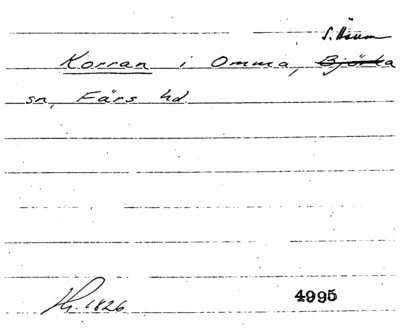 S. Åsum
Korran i Omma, Björka
sn, Färs hd.
Hs. 1826
4995